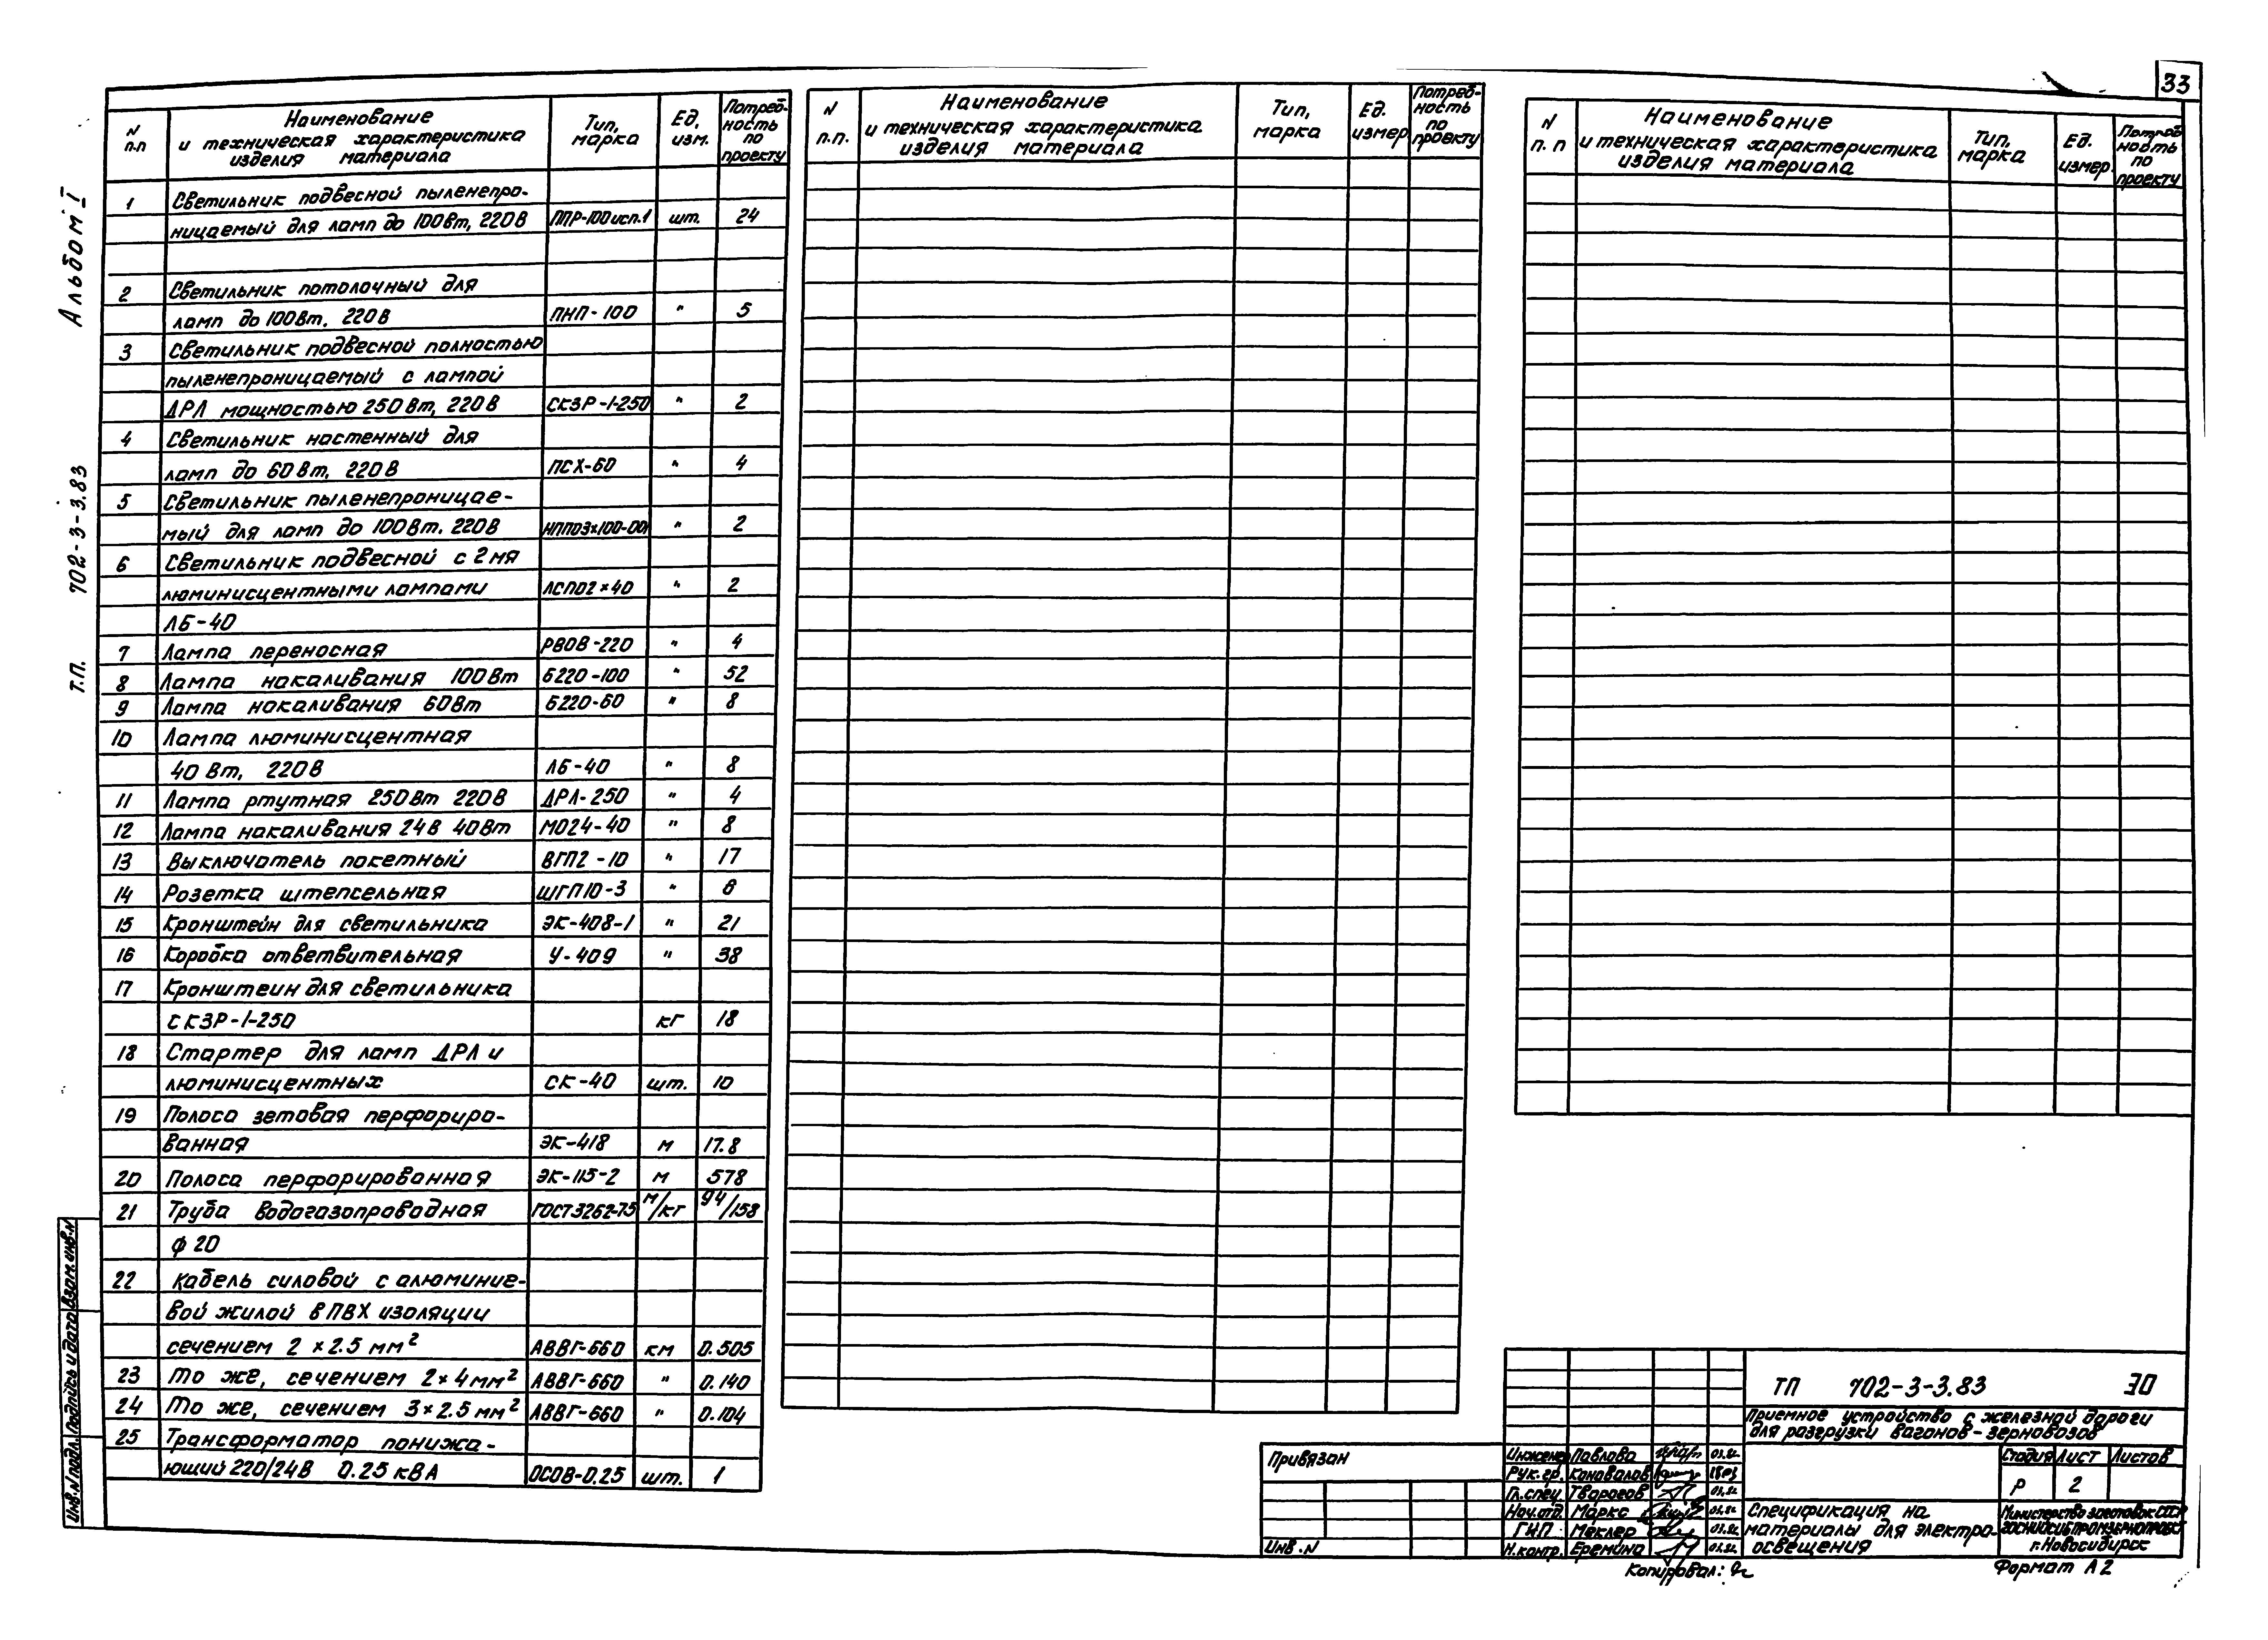 33
Альбом I
Т.П. 702-3-3.83
N п.п
Наименование и техническая характеристика изделия материала
Тип, марка
Ед. изм.
Потреб-ность по проекту
1 Светильник подвесной пыленепро-
ницаемый для ламп до 100Вт, 220В ППР-100исп.1 шт. 24
2 Светильник потолочный для
ламп до 100Вт. 220В ПНП-100 " 5
3 Светильник подвесной полностью
пыленепроницаемый с лампой
ДРЛ мощностью 250Вт, 220В СКЗР-1-250 " 2
4 Светильник настенный для
ламп до 60Вт, 220В ПСХ-60 " 4
5 Светильник пыленепроницае-
мый для ламп до 100Вт. 220В НПП03х100-001 " 2
6 Светильник подвесной с 2мя
люминисцентными лампами ЛСП02×40 " 2
ЛБ-40
7 Лампа переносная РВОВ-220 " 4
8 Лампа накаливания 100Вт Б220-100 " 52
9 Лампа накаливания 60Вт Б220-60 " 8
10 Лампа люминисцентная
40Вт, 220В ЛБ-40 " 8
11 Лампа ртутная 250Вт 220В ДРЛ-250 " 4
12 Лампа накаливания 24В 40Вт МО24-40 " 8
13 Выключатель пакетный ВГП2-10 " 17
14 Розетка штепсельная ШГП10-3 "
15 Кронштейн для светильника ЭК-408-1 " 21
16 Коробка ответвительная У-409 " 38
17 Кронштеин для светильника
СКЗР-1-250 кг 18
18 Стартер для ламп ДРЛ и
люминисцентных СК-40 шт. 10
19 Полоса зетовая перфориро-
ванная ЭК-418 м 17.8
20 Полоса перфорированная ЭК-115-2 м 578
21 Труба водогазопроводная ГОСТ3262-75 м/кг 94/158
ф 20
22 Кабель силовой с алюминие-
вой жилой в ПВХ изоляции
сечением 2×2.5 мм² АВВГ-660 км 0.505
23 То же, сечением 2×4мм² АВВГ-660 " 0.140
24 То же, сечением 3×2.5мм² АВВГ-660 " 0.104
25 Трансформатор понижа-
ющий 220/24В 0.25 кВА ОСОВ-0.25 шт. 1
N п.п.
Наименование и техническая характеристика изделия материала
Тип, марка
Ед. измер
Потреб-ность по проекту
N п. п
Наименование и техническая характеристика изделия материала
Тип, марка
Ед. измер.
Потреб ность по проекту
Инв.N подл. Подпись и дата Взам.инв.N
Привязан
Инв.N
ТП 702-3-3.83 ЭО
Приемное устройство с железной дороги
для разгрузки вагонов-зерновозов
Инженер Павлова 03.82
Рук.гр. Коновалов
Гл.спец. Творогов 03.82
Нач.отд. Маркс 03.82
ГИП Меклер 03.82
Н.контр. Еремина 03.82
Стадия Лист Листов
Р 2
Спецификация на
материалы для электро-
освещения
Министерство заготовок СССР
г.Новосибирск
Копировал:
Формат А2